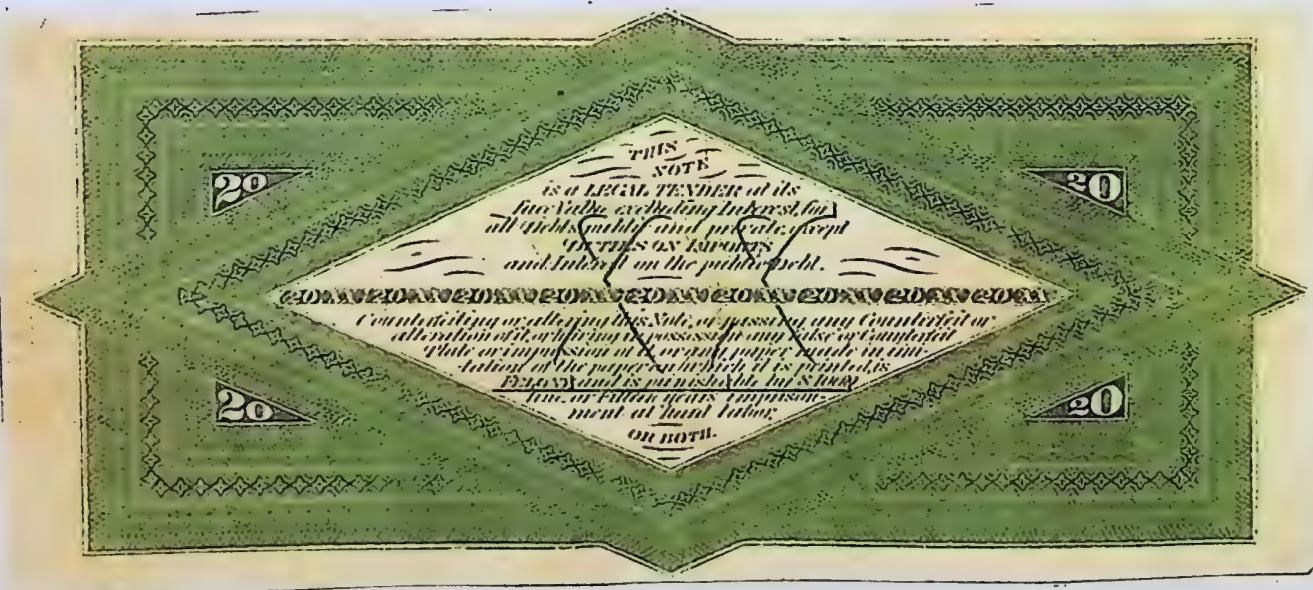 20 20
THIS
NOTE
is a LEGAL TENDER at its
face Value, excluding Interest, for
all Debts public and private, except
DUTIES ON IMPORTS
and Interest on the public Debt.
Counterfeiting or altering this Note, or passing any Counterfeit or
alteration of it, or having in possession any false or Counterfeit
Plate or impression of it, or any paper made in imi-
tation of the paper on which it is printed, is
FELONY, and is punishable by
fine, or Fifteen years Imprison-
ment at hard labor,
OR BOTH.
20 20